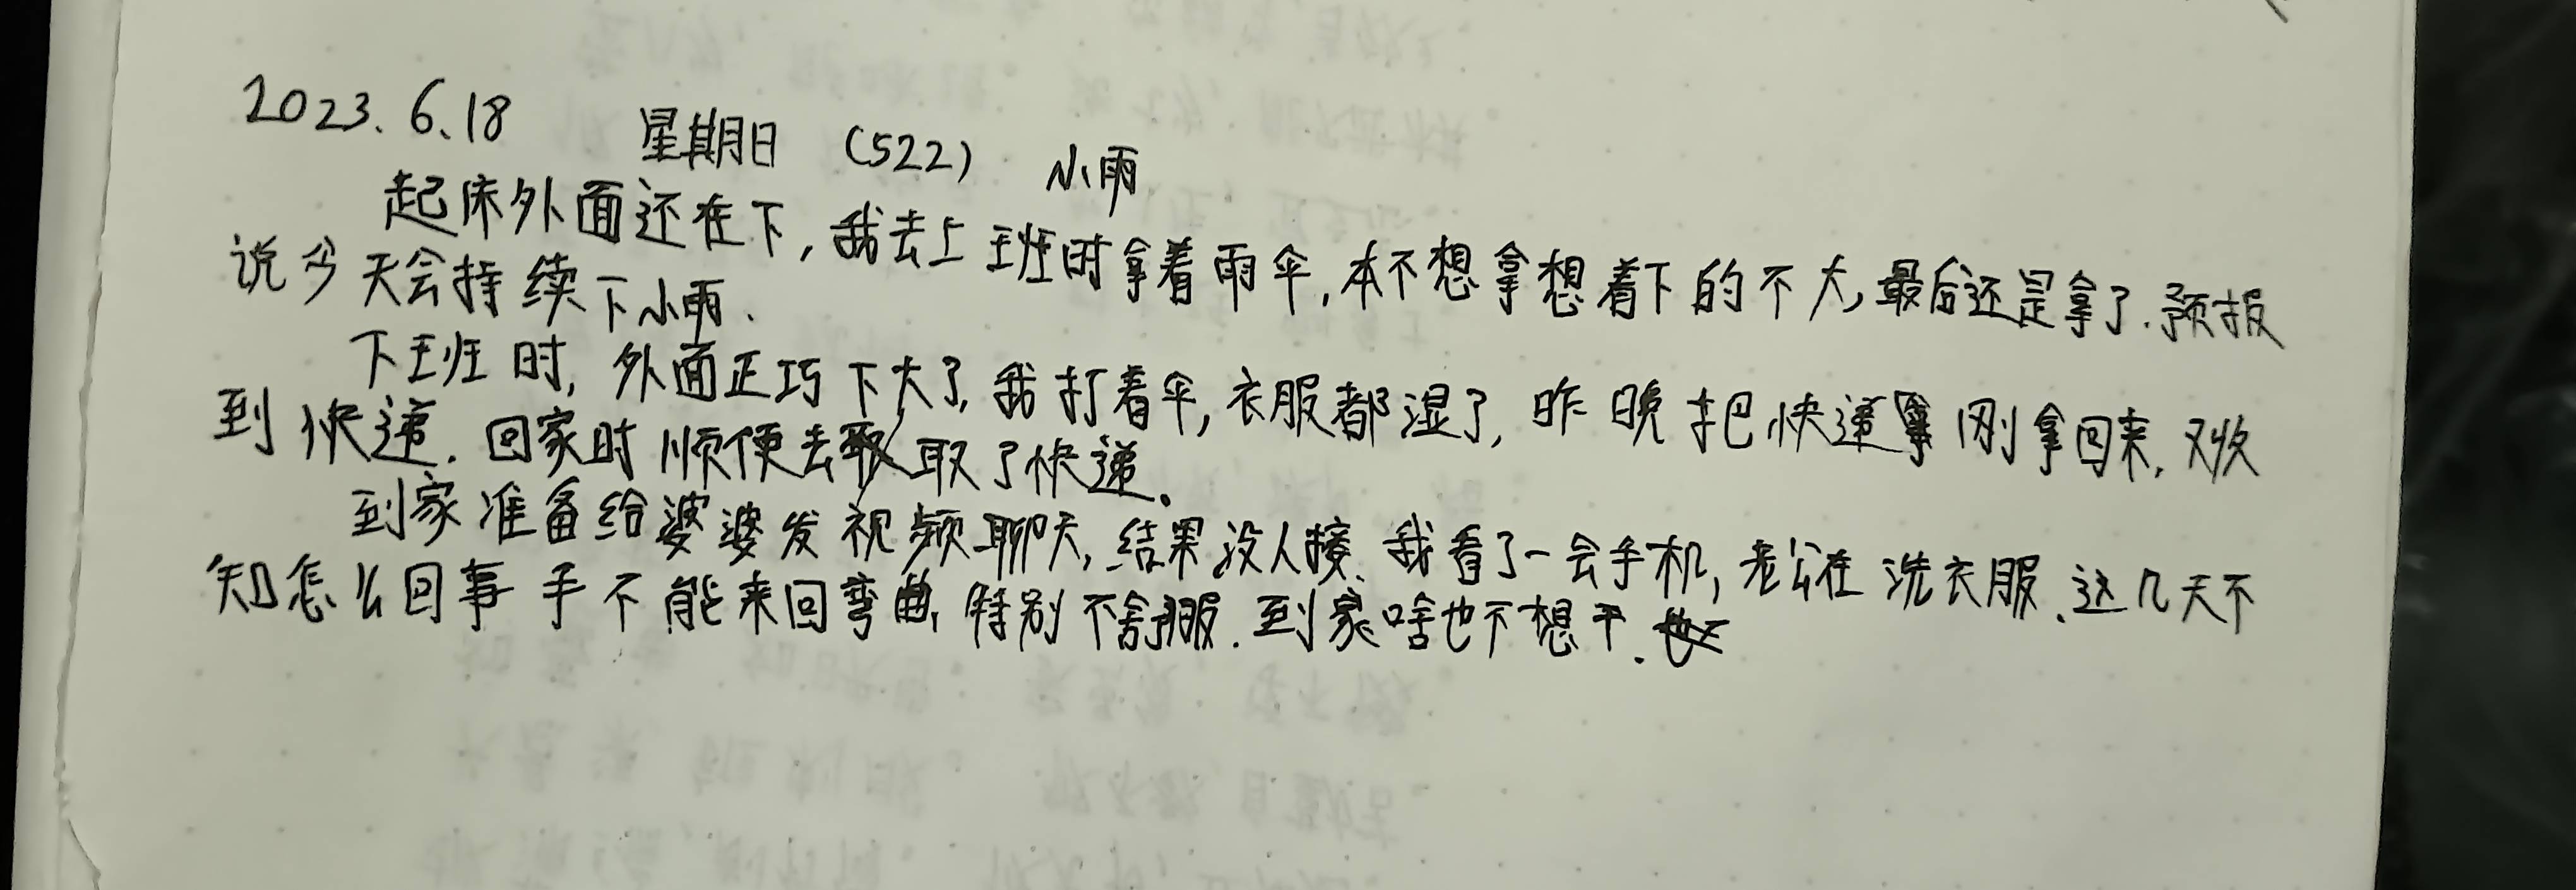 2023.6.18 星期日 (522) 小雨
起床外面还在下,我去上班时拿着雨伞,本不想拿想着下的不大,最后还是拿了.预报
说今天会持续下小雨.
下班时,外面正巧下大了,我打着伞,衣服都湿了,昨晚把快递刚拿回来,又收
到快递.回家时顺便去取了快递。
到家准备给婆婆发视频聊天,结果没人接.我看了一会手机,老公在洗衣服.这几天不
知怎么回事手不能来回弯曲,特别不舒服.到家啥也不想干.